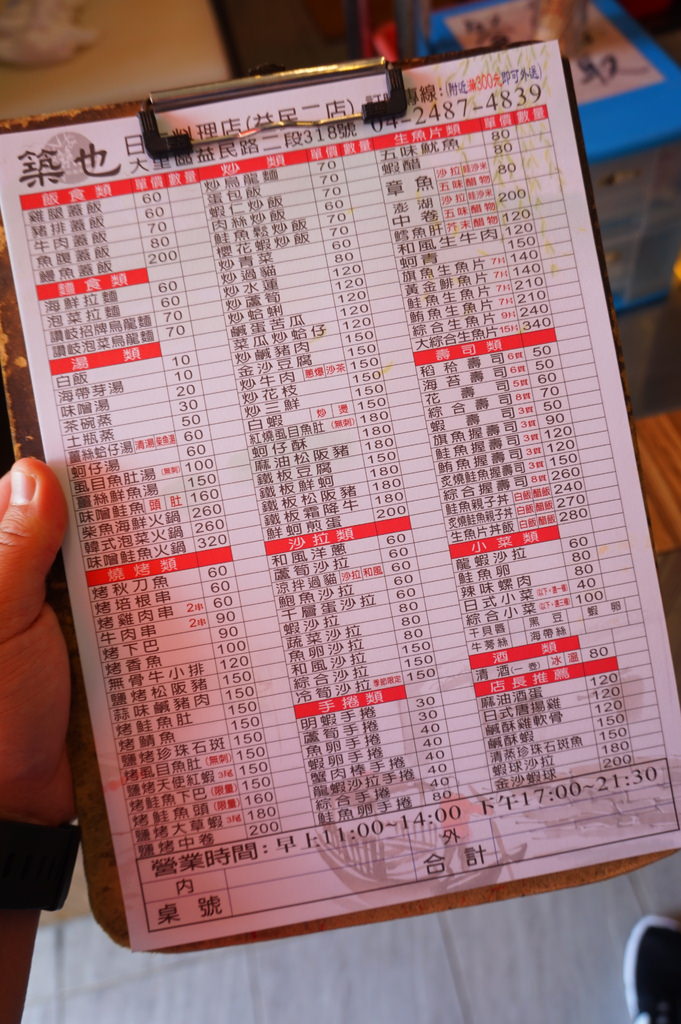 築也
日 料理店(益民二店)
專線:(附近滿300元即可外送)
大里區益民路二段318號 04-2487-4839
飯食類 單價 數量
雞腿蓋飯 60
豬排蓋飯 60
牛肉蓋飯 70
魚腹蓋飯 80
鰻魚蓋飯 200
麵食類
海鮮拉麵 60
泡菜拉麵 60
讚岐招牌烏龍麵 70
讚岐泡菜烏龍麵 70
湯類
白飯 10
海帶芽湯 10
味噌湯 20
茶碗蒸 30
土瓶蒸 50
薑絲蛤仔湯 清湯 柴魚湯 60
蚵仔湯 60
虱目魚肚湯(無刺) 100
薑絲鮮魚湯 150
味噌鮭魚 頭 肚 160
柴魚海鮮火鍋 260
韓式泡菜火鍋 260
味噌鮭魚火鍋 320
燒烤類
烤秋刀魚 60
烤培根串 60
烤雞肉串 2串 60
牛肉串 2串 90
烤下巴 90
烤香魚 100
無骨牛小排 120
鹽烤松阪豬 150
蒜味鹹豬肉 150
烤鮭魚肚 150
烤鯖魚 150
鹽烤珍珠石斑 150
烤虱目魚肚(無刺) 150
鹽烤天使紅蝦 3尾 150
烤鮭魚下巴(限量) 150
烤鮭魚頭(限量) 160
鹽烤大草蝦 3尾 180
鹽烤中卷 200
炒類 單價 數量
炒烏龍麵 70
蛋包飯 70
蝦仁炒飯 60
肉絲炒飯 60
鮭魚鬆炒飯 70
櫻花蝦炒飯 70
炒青菜 60
炒過貓 80
炒水蓮 120
炒蘆筍 120
炒蛤蜊 120
鹹蛋苦瓜 120
菜瓜炒蛤仔 120
炒鹹豬肉 150
金沙豆腐 150
炒牛肉 蔥爆 沙茶 150
炒花枝 150
炒三鮮 150
白蝦 炒 燙 150
紅燒虱目魚肚(無刺) 180
蚵仔酥 180
麻油松阪豬 180
鐵板豆腐 150
鐵板鮮蚵 180
鐵板松阪豬 180
鐵板霜降牛 180
鮮蚵煎蛋 200
沙拉類
和風洋蔥 60
蘆筍沙拉 60
涼拌過貓 沙拉 和風 60
鮑魚沙拉 60
千層蛋沙拉 60
蝦沙拉 80
蔬菜沙拉 80
魚卵沙拉 80
和風沙拉 80
綜合沙拉 150
冷筍沙拉 季節限定 150
手捲類
明蝦手捲 30
蘆筍手捲 30
魚卵手捲 40
蟹肉棒手捲 40
龍蝦沙拉手捲 40
綜合手捲 40
鮭魚卵手捲 80
生魚片類 單價 數量
五味魷魚 80
蝦醋 80
章魚 沙拉 哇沙米 五味 醋物 80
澎湖中卷 沙拉 哇沙米 五味 醋物 芥末 醋物 200
鱈魚肝 120
和風生牛肉 120
蚵青 150
旗魚生魚片 7片 140
黃金鯡魚片 7片 140
鮭魚生魚片 7片 210
鮪魚生魚片 7片 210
綜合生魚片 9片 240
大綜合生魚片 15片 340
壽司類
稻禾壽司 6貫 50
海苔壽司 6貫 50
花壽司 5貫 60
綜合壽司 8貫 70
蝦壽司 3貫 50
旗魚握壽司 3貫 90
鮭魚握壽司 3貫 120
鮪魚握壽司 3貫 120
炙燒鮭魚握壽司 3貫 150
綜合握壽司 8貫 260
鮭魚親子丼 白飯 醋飯 240
炙燒鮭魚親子丼 白飯 醋飯 270
生魚片丼飯 白飯 醋飯 280
小菜類
龍蝦沙拉 60
鮭魚卵 80
辣味螺肉 60
日式小菜(以下選一種) 40
綜合小菜(以下選三種) 100
干貝唇 黑豆 蝦卵
牛蒡絲 海帶絲
酒類
清酒(一壺) 冰 溫 80
店長推薦
麻油酒蛋 120
日式唐揚雞 120
鹹酥雞軟骨 120
鹹酥蝦 150
清蒸珍珠石斑魚 150
蝦球沙拉 180
金沙蝦球 200
營業時間:早上11:00~14:00 下午17:00~21:30
內 外
桌號 合計
取